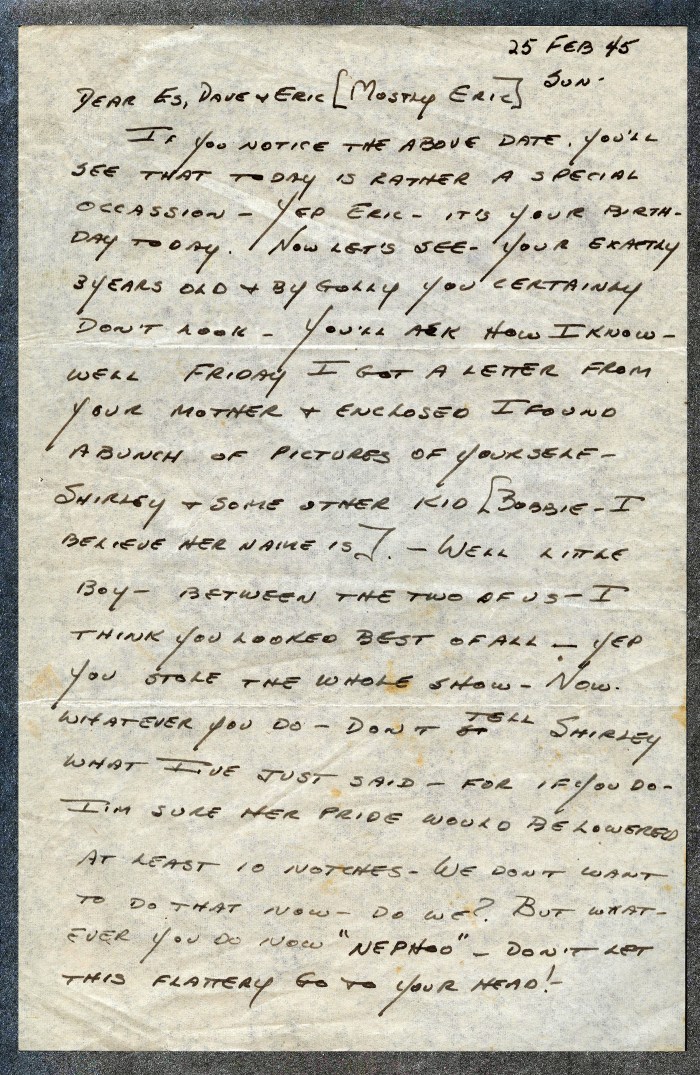 25 FEB 45
SUN.
DEAR ES, DAVE & ERIC [MOSTLY ERIC]
IF YOU NOTICE THE ABOVE DATE. YOU'LL
SEE THAT TODAY IS RATHER A SPECIAL
OCCASSION - YEP ERIC - IT'S YOUR BIRTH-
DAY TODAY. NOW LET'S SEE - YOUR EXACTLY
3 YEARS OLD & BY GOLLY YOU CERTAINLY
DON'T LOOK - YOU'LL ASK HOW I KNOW -
WELL FRIDAY I GOT A LETTER FROM
YOUR MOTHER & ENCLOSED I FOUND
A BUNCH OF PICTURES OF YOURSELF -
SHIRLEY & SOME OTHER KID [BOBBIE - I
BELIEVE HER NAME IS]. - WELL LITTLE
BOY - BETWEEN THE TWO OF US - I
THINK YOU LOOKED BEST OF ALL - YEP
YOU STOLE THE WHOLE SHOW - NOW.
WHATEVER YOU DO - DON'T TELL SHIRLEY
WHAT I'VE JUST SAID - FOR IF YOU DO -
I'M SURE HER PRIDE WOULD BE LOWERED
AT LEAST 10 NOTCHES - WE DON'T WANT
TO DO THAT NOW - DO WE? BUT WHAT-
EVER YOU DO NOW "NEPHOO" - DON'T LET
THIS FLATTERY GO TO YOUR HEAD! -